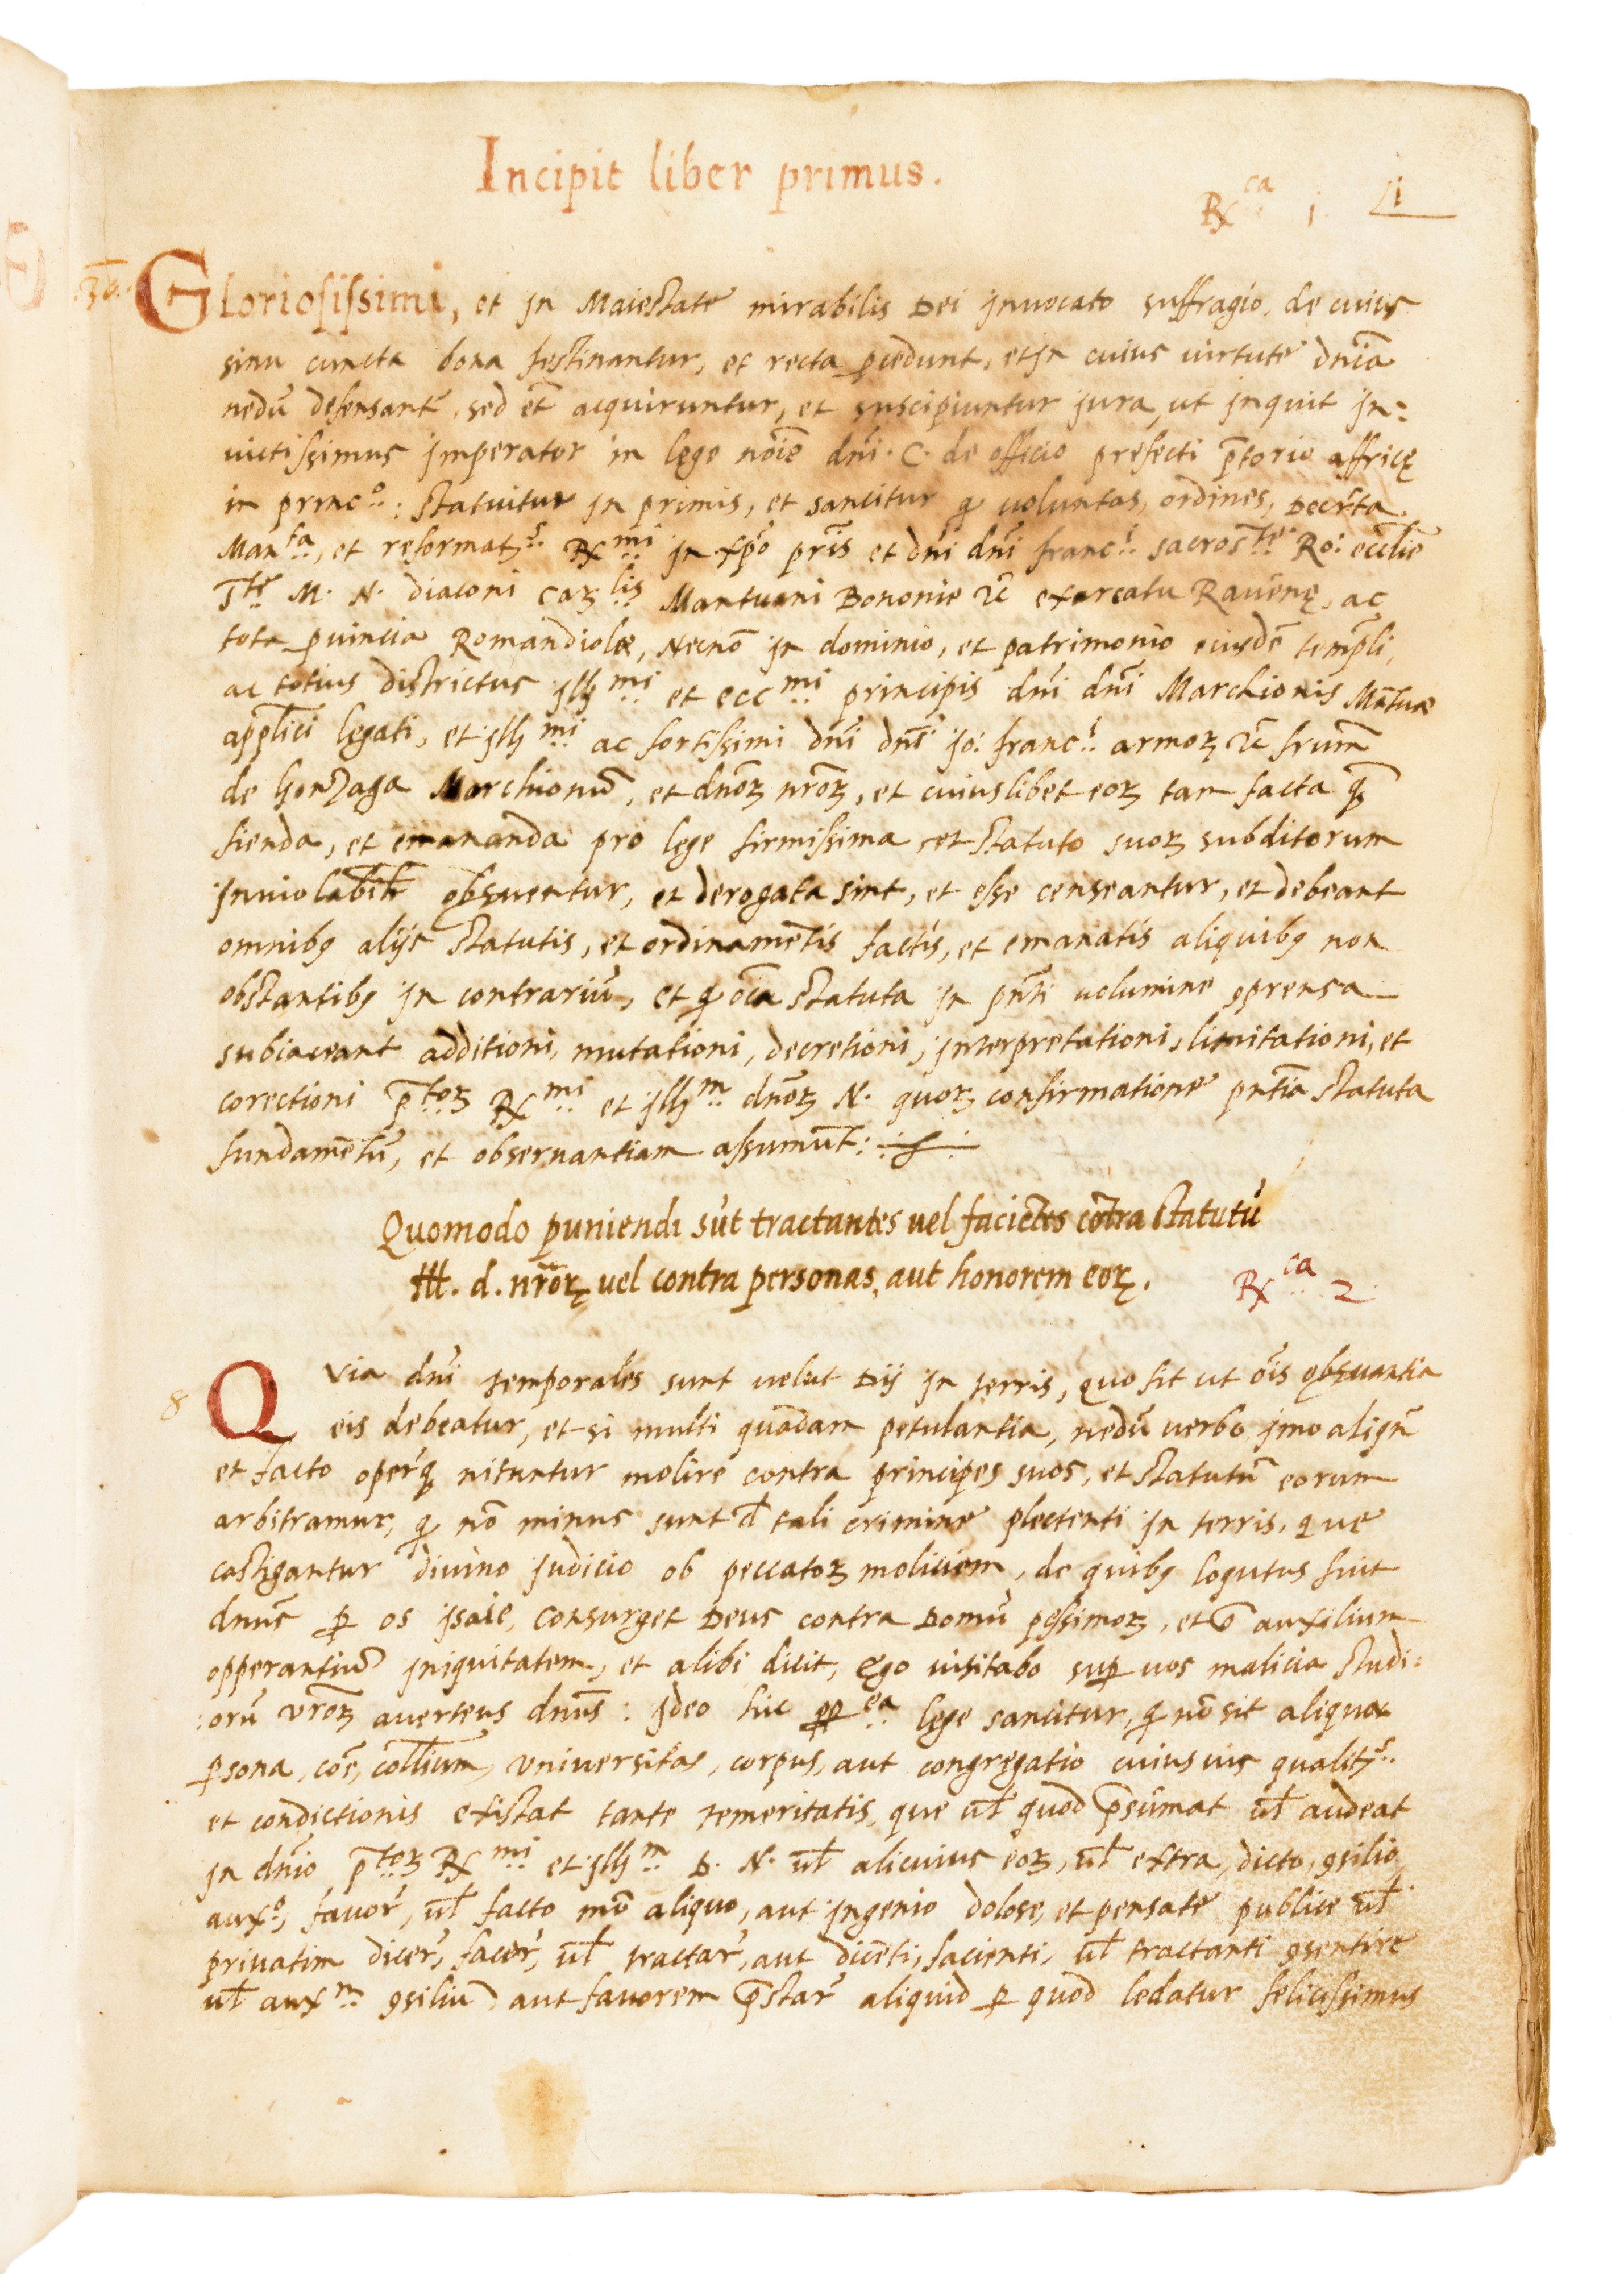 Incipit liber primus.
Rx ca 1 1
Gloriosissimi, et in Maiestate mirabilis Dei invocato suffragio, de cuius
sinu cuncta bona festinantur, et recta ꝓcedunt, et in cuius virtute dn̄ia
nedū defensant̄, sed et̄ acquiruntur, et suscipiuntur iura, ut inquit in=
victissimus imperator in lege nōie dn̄i. C. de officio prefecti p̄torio affricę
in princ.o: statuitur in primis, et sancitur ꝙ voluntas, ordines, Decr̄ta
Man.ta, et reformat.s Rx.mi in xp̄o pr̄is et dn̄i dn̄i franc.i sacros.te Ro: eccl̄ie
T.te M. N. diaconi Car.lis Mantuani Bononie &c̄ exarcatu Ravēnę, ac
tota ꝓvincia Romandiolæ, Necnō in dominio, et patrimonio eiusdē templi,
ac totius districtus ill.mi et ecc.mi principis dn̄i dn̄i Marchionis Mātuæ
appl̄ici legati, et ill.mi ac fortissimi dn̄i dn̄i io: franc.i armoꝝ &c̄ frum̄
de gonzaga Marchionū, et dn̄oꝝ nr̄oꝝ, et cuiuslibet eoꝝ tam facta q̄
fienda, et emananda pro lege firmissima, et statuto suoꝝ subditorum
inviolabilr̄ obs̄ventur, et derogata sint, et esse censeantur, et debeant
omnibꝫ alijs statutis, et ordinamētis factis, et emanatis aliquibꝫ non
obstantibꝫ in contrariū, et ꝙ oīa statuta in pn̄ti volumine ꝯprensa
subiaceant additioni, mutationi, decretioni, interpretationi, limitationi, et
corectioni p.toꝝ Rx.mi et ill.m dn̄oꝝ N. quoꝝ confirmatione pn̄tia statuta
fundamētū, et observantiam assumūt:
Quomodo puniendi sūt tractantes vel faciētes cōtra statutū
Ill. d. nr̄oꝝ, vel contra personas, aut honorem eoꝝ.
Rx ca 2
8
Quia dn̄i temporales sunt velut Dij in terris, quo fit ut ōis obs̄vantia
eis debeatur, et si multi quadam petulantia, nedū verbo, imo aliqn̄
et facto operq̄ nituntur molire contra principes suos, et statutū eorum
arbitramur, ꝙ nō minus sunt đ tali crimine plectenti in terris, que
castigantur divino iudicio ob peccatoꝝ moliciem, de quibꝫ loqutus fuit
dnūs ꝑ os isaie, consurget Deus contra Domū pessimoꝝ, et ꝯ̄ auxilium
opperantiū iniquitatem, et alibi dicit, ego visitabo suꝑ vos malicia studi=
:orū vr̄oꝝ averteus dnūs: ideo hic ꝑp.ea lege sancitur, ꝙ nō sit aliqua
ꝑsona, cōe, coll̄ium, Universitas, corpus, aut congregatio cuiusvis qualit.s
et condictionis existat tante temeritatis, que ul̄ quod p̄sumat ul̄ audeat
in dn̄io p.toꝝ Rx.mi et ill.m D. N. ul̄ alicuius eoꝝ, ul̄ extra, dicto, ꝯsilio
aux.o, favor̄, ul̄ facto mō aliquo, aut ingenio dolose, et pensate publice ul̄
privatim dicer̄, facer̄, ul̄ tractar̄, aut dicēti, facienti, ul̄ tractanti ꝯsentire
ul̄ aux.m ꝯsiliū, aut favorem p̄star̄ aliquid ꝑ quod ledatur felicissimus